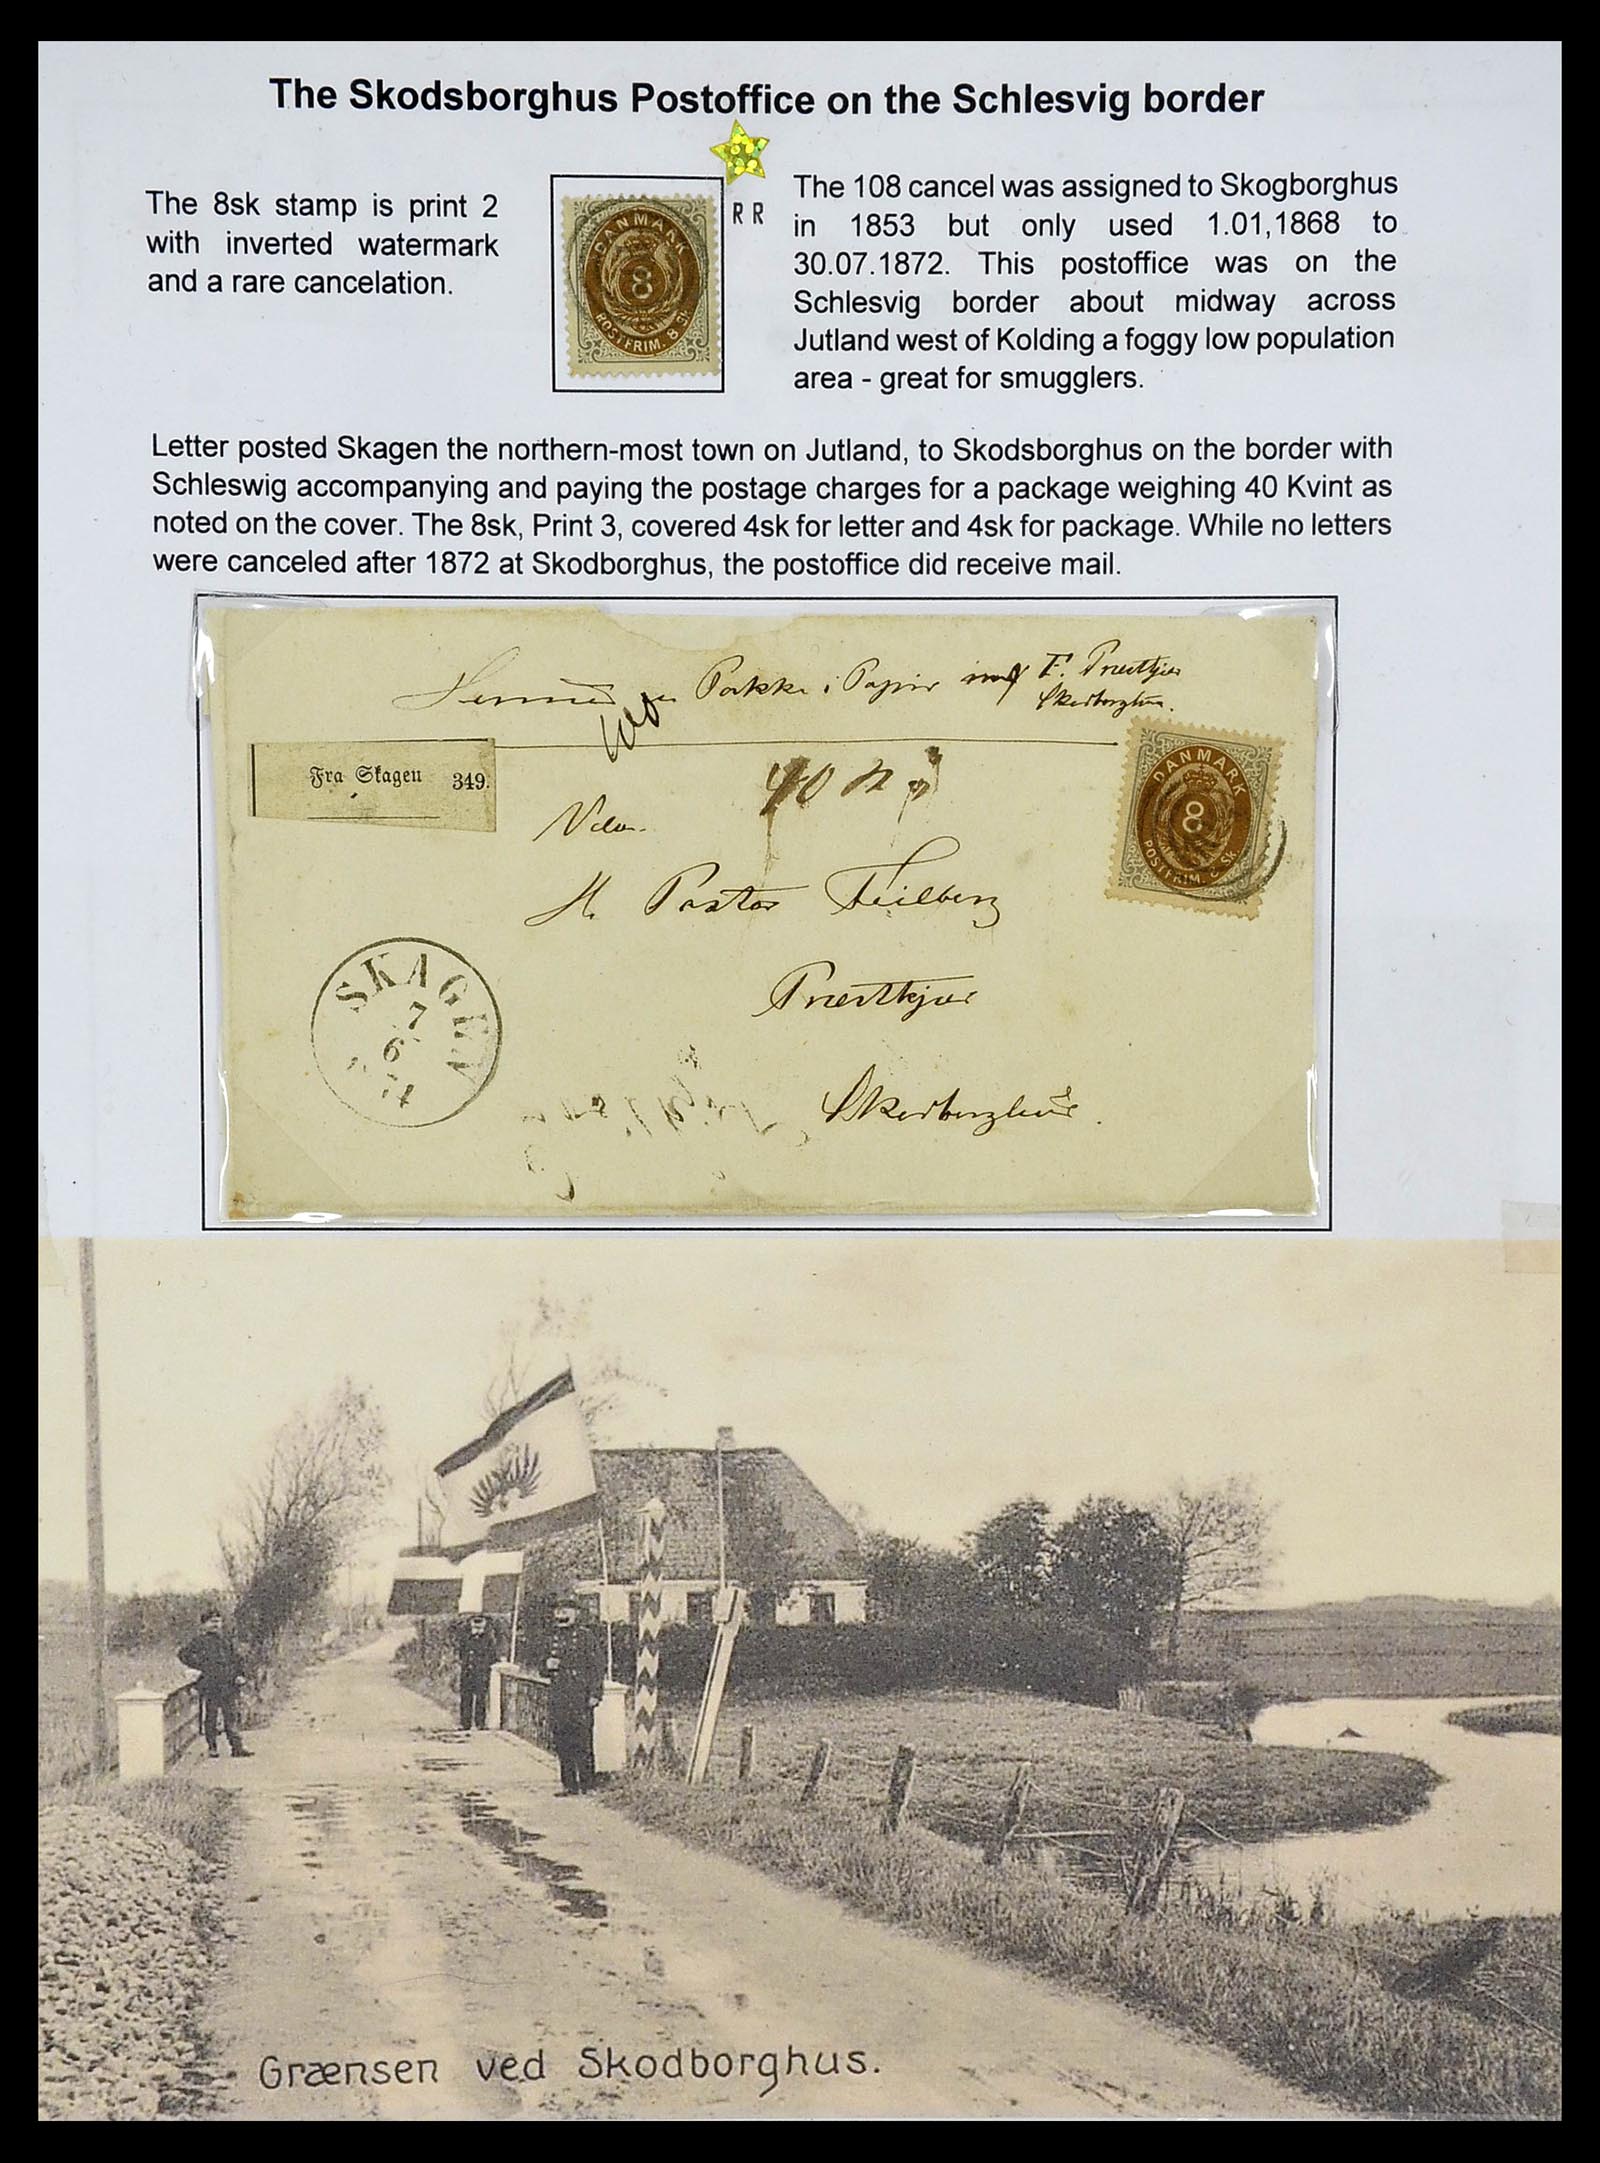 The Skodsborghus Postoffice on the Schlesvig border
The 8sk stamp is print 2
with inverted watermark
and a rare cancelation.
DANMARK
8
POSTFRIM. 8 SK.
R R
The 108 cancel was assigned to Skogborghus
in 1853 but only used 1.01,1868 to
30.07.1872. This postoffice was on the
Schlesvig border about midway across
Jutland west of Kolding a foggy low population
area - great for smugglers.
Letter posted Skagen the northern-most town on Jutland, to Skodsborghus on the border with
Schleswig accompanying and paying the postage charges for a package weighing 40 Kvint as
noted on the cover. The 8sk, Print 3, covered 4sk for letter and 4sk for package. While no letters
were canceled after 1872 at Skodborghus, the postoffice did receive mail.
Pakke i Papir
Fra Skagen 349.
40
DANMARK
8
POSTFRIM. 8 Sk.
H. Pastor Feilberg
SKAGEN
7
6
Græensen ved Skodborghus.